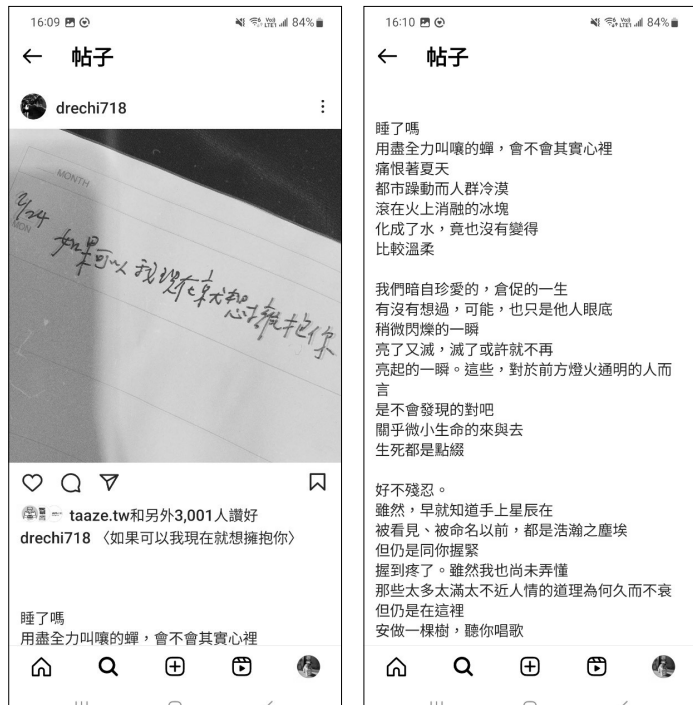 16:09
84%
帖子
drechi718
MONTH
7/24
MON
如果可以我現在就想擁抱你
taaze.tw和另外3,001人讚好
drechi718 〈如果可以我現在就想擁抱你〉
睡了嗎
用盡全力叫嚷的蟬，會不會其實心裡
16:10
84%
帖子
睡了嗎
用盡全力叫嚷的蟬，會不會其實心裡
痛恨著夏天
都市躁動而人群冷漠
滾在火上消融的冰塊
化成了水，竟也沒有變得
比較溫柔
我們暗自珍愛的，倉促的一生
有沒有想過，可能，也只是他人眼底
稍微閃爍的一瞬
亮了又滅，滅了或許就不再
亮起的一瞬。這些，對於前方燈火通明的人而
言
是不會發現的對吧
關乎微小生命的來與去
生死都是點綴
好不殘忍。
雖然，早就知道手上星辰在
被看見、被命名以前，都是浩瀚之塵埃
但仍是同你握緊
握到疼了。雖然我也尚未弄懂
那些太多太滿太不近人情的道理為何久而不衰
但仍是在這裡
安做一棵樹，聽你唱歌